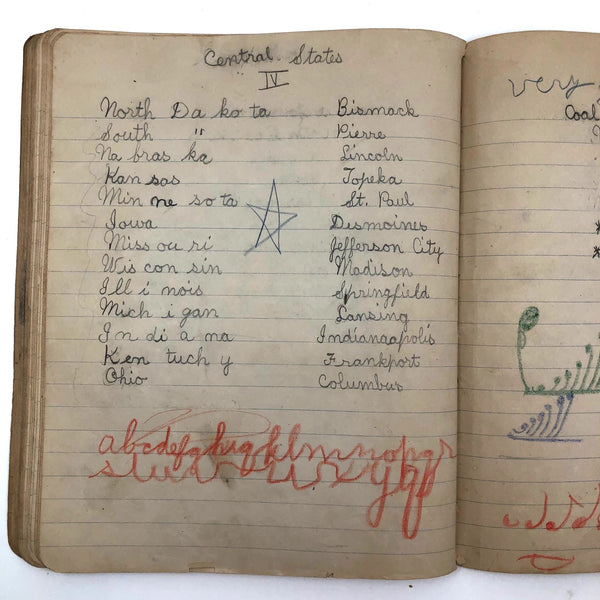 Central States
IV
North Da ko ta Bismack
South " Pierre
Na bras ka Lincoln
Kan sas Topeka
Min ne so ta St. Paul
Iowa Desmoines
Miss ou ri Jefferson City
Wis con sin Madison
Ill i nois Springfield
Mich i gan Lansing
In di a na Indianaapolis
Ken tuch y Frankport
Ohio Columbus
very
Coal